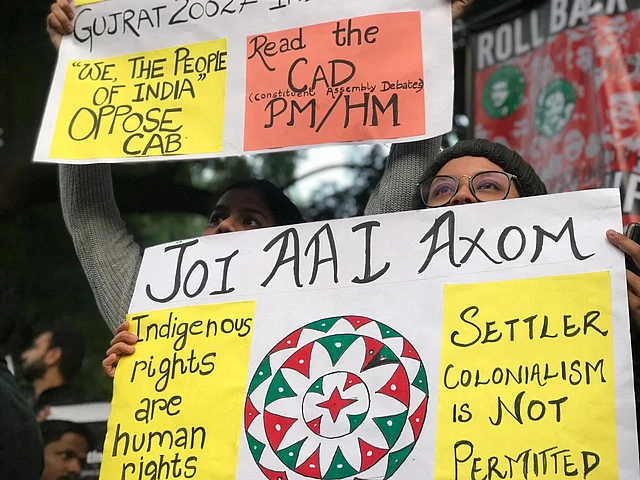 GUJRAT 2002
"WE, THE PEOPLE
OF INDIA"
OPPOSE
CAB
Read the
CAD
(Constituent Assembly Debates)
PM/HM
ROLL BACK
JOI AAI AXOM
Indigenous
rights
are
human
rights
SETTLER
COLONIALISM
IS NOT
PERMITTED